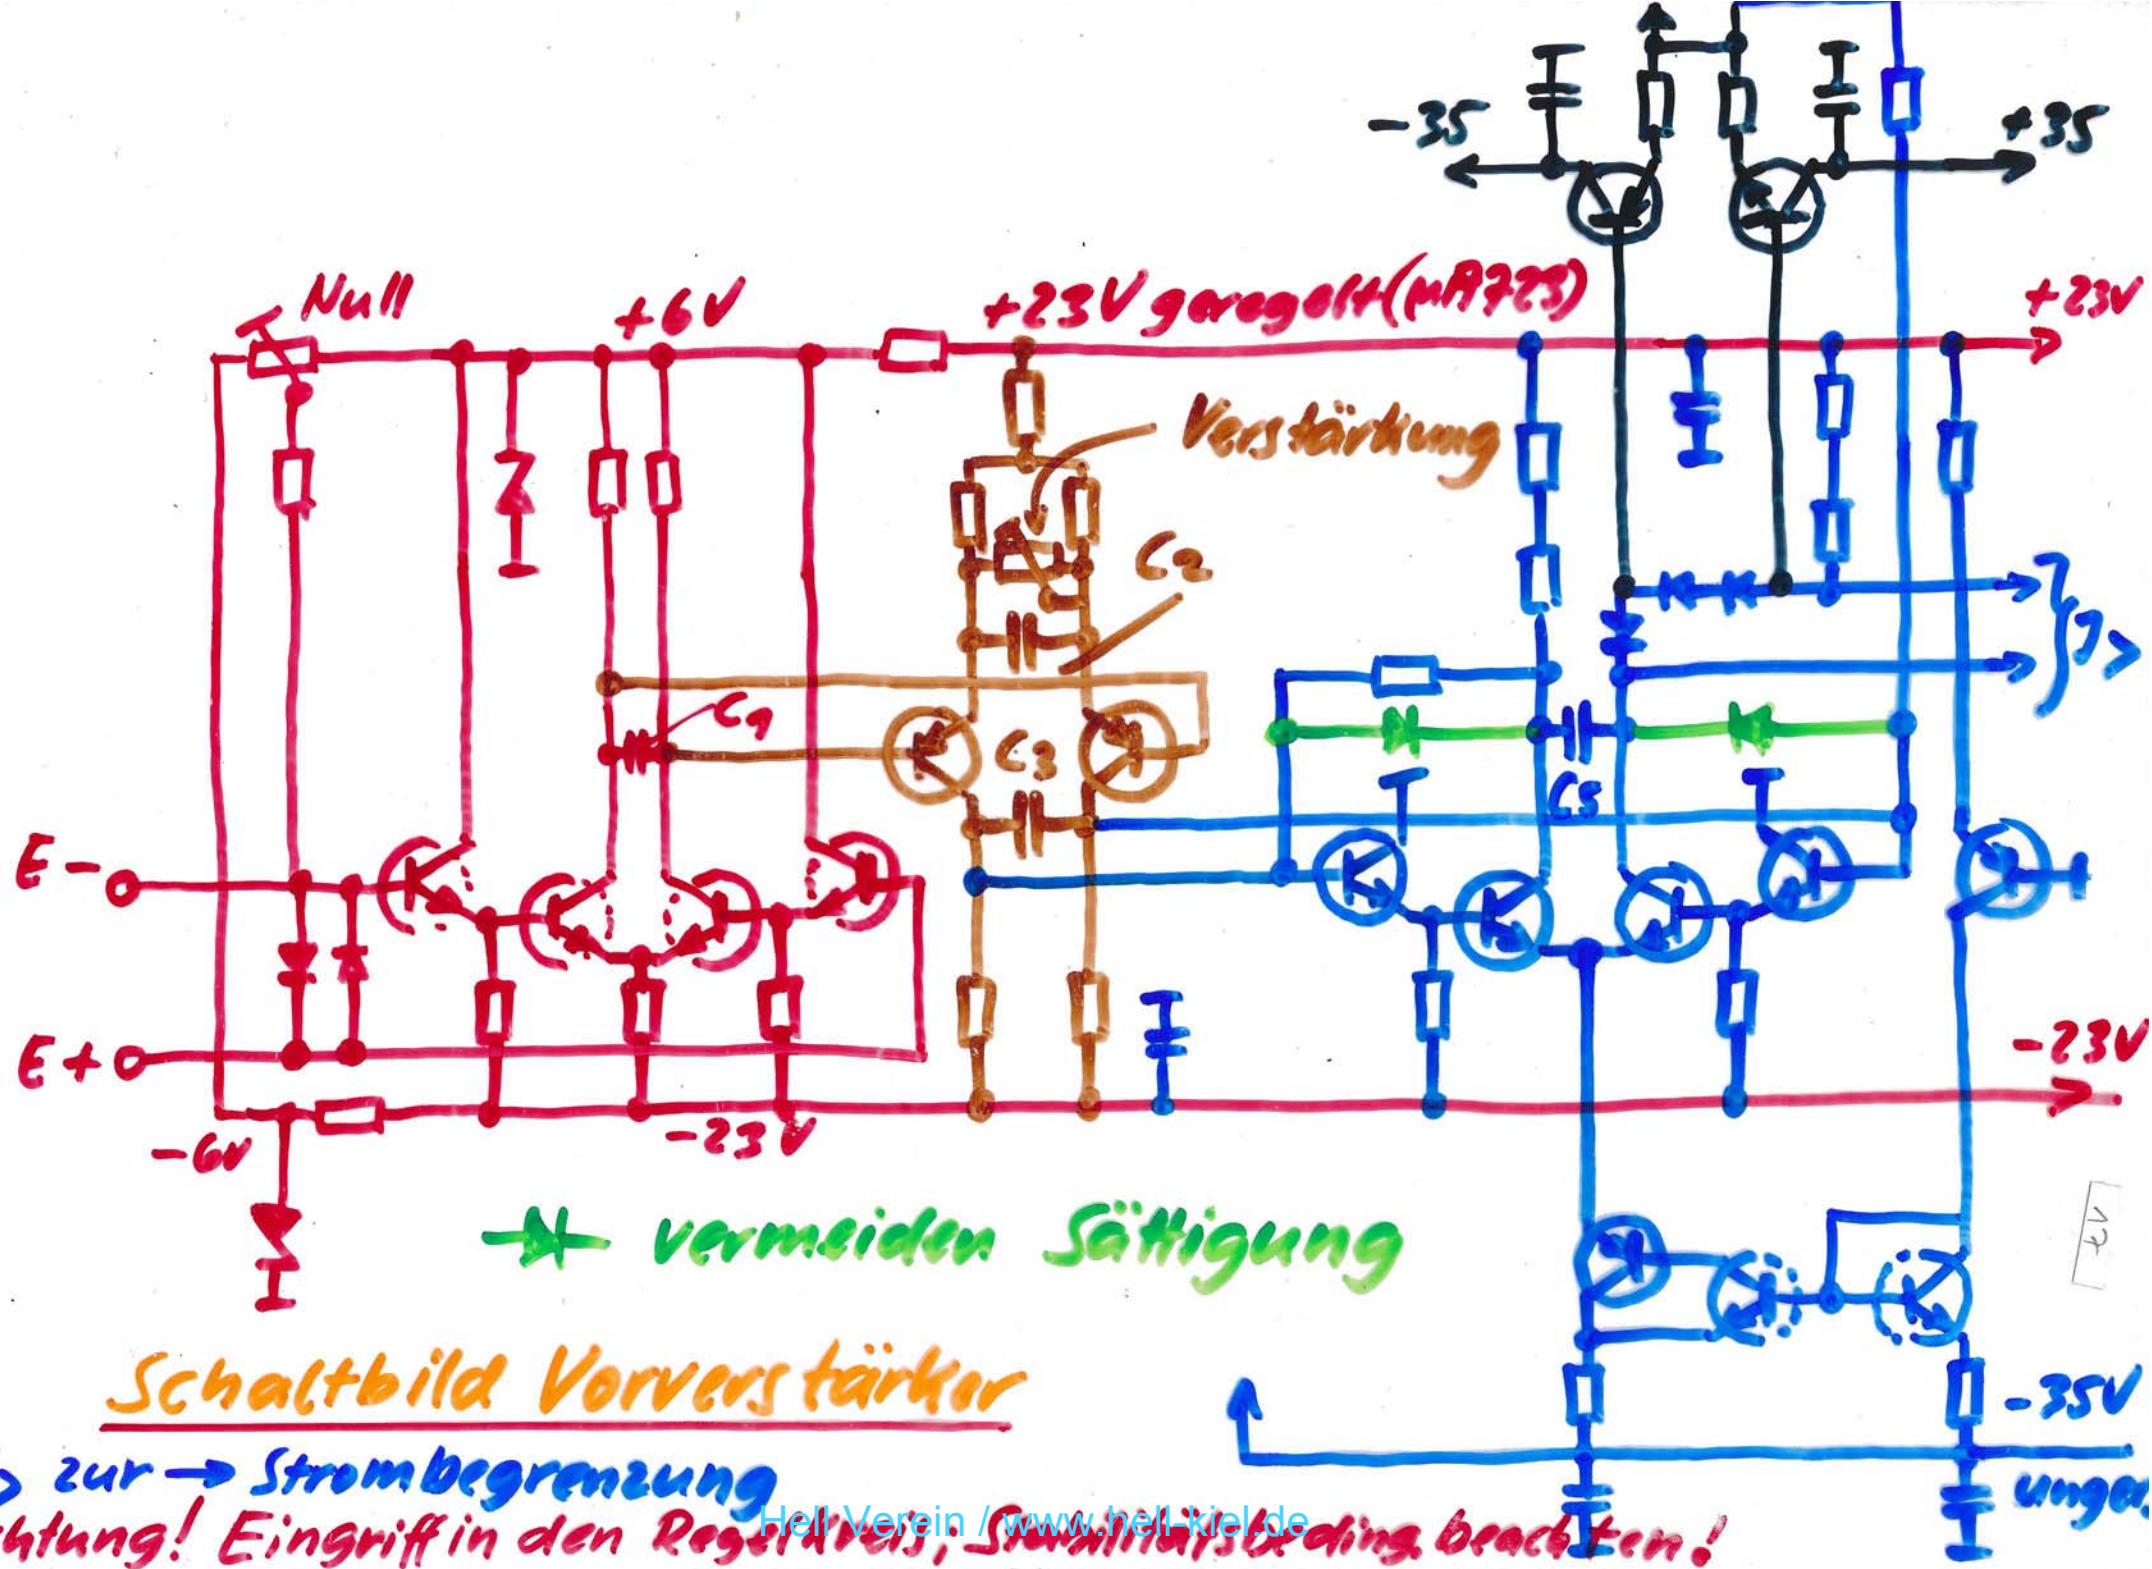 -35
+35
Null
+6V
+23V geregelt(µA723)
+23V
Verstärkung
C2
C1
C3
C5
E-
E+
-6V
-23V
-23V
vermeiden Sättigung
Schaltbild Vorverstärker
-35V
zur → Strombegrenzung
unger
chtung! Eingriff in den Regelkreis, Stabilitätsbeding. beachten!
Hell Verein / www.hell-kiel.de